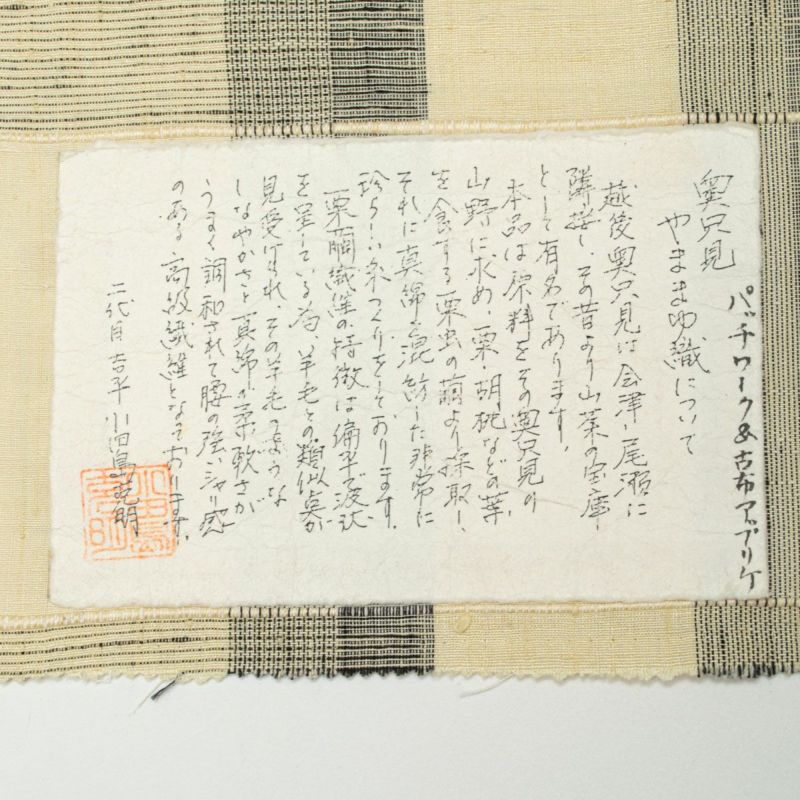 パッチワーク&古布アップリケ
奥只見
やままゆ織について
越後奥只見は会津、尾瀬に
隣接し、その昔より山菜の宝庫
として有名であります。
本品は原料をその奥只見の
山野に求め、栗・胡桃などの葉
を食する栗虫の繭より採取し、
それに真綿を混紡した非常に
珍らしい糸づくりをしております。
栗繭繊維の特徴は偏平で波状
を呈している為、羊毛との類似点が
見受けられ、その羊毛のような
しなやかさと真綿の柔軟さが
うまく調和されて腰の強いシャリ感
のある高級繊維となっております。
二代目 吉平 小田島克明